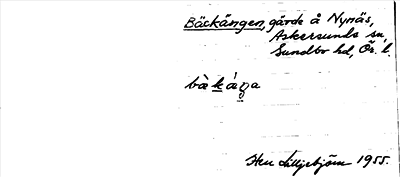 Bäckängen, gärde å Nynäs,
Askersunds sn,
Sundbo hd, Ör. l.
Hen Lilljebjörn 1955.